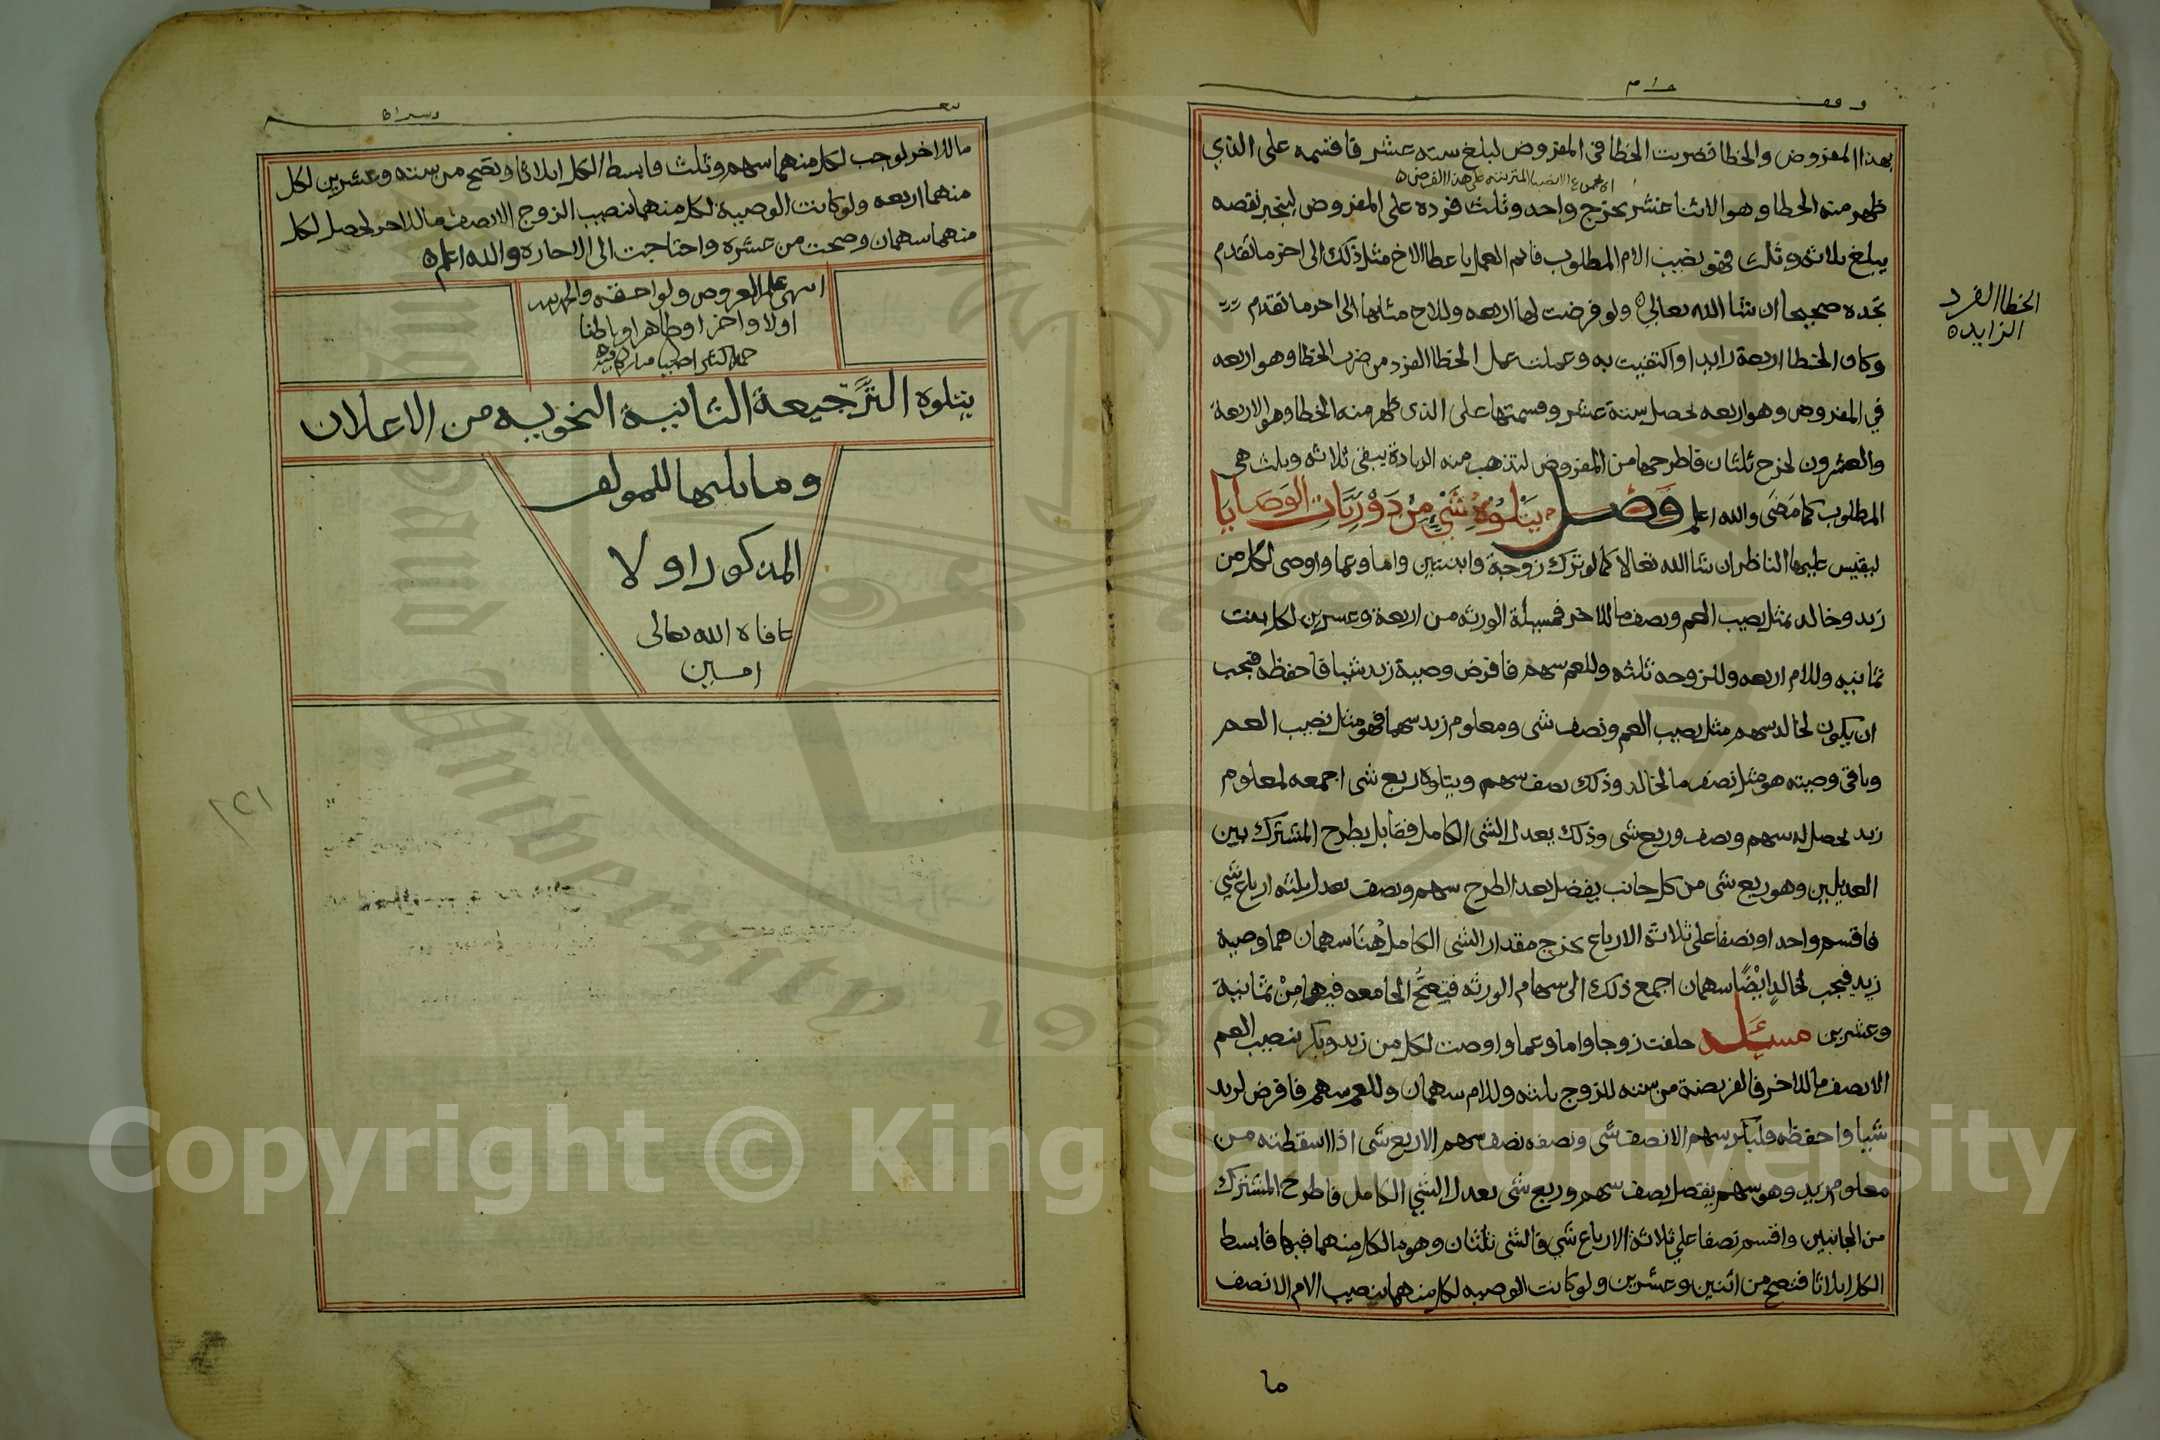 بهذا المفروض والخطا فضربت الخطا في المفروض لبلغ سته عشر فاقسمه على الذي
ظهر منه الخطا وهو الاثنا عشر يخرج واحد وثلث فزده على المفروض لينجبر نقصه
يبلغ ثلاثه وثلث فهو نصيب الام المطلوب فاتم العمل باعطا الاخ مثل ذلك الى اخر ما تقدم
تجده صحيحا ان شا الله تعالى ولو فرضت لها اربعه وللاخ مثلها الى اخر ما تقدم
وكان الخطا اربعة زايدا واكتفيت به وعملت عمل الخطا الفرد من ضرب الخطا وهو اربعه
في المفروض وهو اربعه لحصل ستة عشر وقسمتها على الذي ظهر منه الخطا وهو الاربعة
والعشرون لخرج ثلثان فاطرحها من المفروض لتذهب منه الزيادة يبقى ثلاثه وثلث هي
المطلوب كما مضى والله اعلم فصل يتلوه شي من دوريات الوصايا
ليقيس عليها الناظر ان شا الله تعالى كما لو ترك زوجة وابنتين واما وعما واوصى لكل من
زيد وخالد بمثل نصيب العم ونصف ما للاخر فمسيلة الورثه من اربعة وعشرين لكل بنت
ثمانيه وللام اربعه وللزوجه ثلثه وللعم سهم فافرض وصية زيد شيا فاحفظه فيجب
ان يكون لخالد سهم مثل نصيب العم ونصف شي ومعلوم زيد سهما فهو مثل نصيب العم
وباقي وصيته هو مثل نصف ما لخالد وذلك نصف سهم ويتلوه ربع شي اجمعه لمعلوم
زيد يحصل له سهم ونصف وربع شي وذلك يعدل الشي الكامل فقابل بطرح المشترك بين
العديلين وهو ربع شي من كل جانب يفضل بعد الطرح سهم ونصف يعدل ثلثه ارباع شي
فاقسم واحدا ونصفا على ثلاثة الارباع يخرج مقدار الشي الكامل هنا سهمان هما وصية
زيد فيجب لخالد ايضا سهمان اجمع ذلك الى سهام الورثه فتصح الجامعه فيهما من ثمانية
وعشرين مسئله خلفت زوجا واما وعما واوصت لكل من زيد وبكر بنصيب العم
الا نصف ما للاخر فالفريضة من سته للزوج ثلثه وللام سهمان وللعم سهم فافرض لزيد
شيا واحفظه ولبكر سهم الا نصف شي ونصفه نصف سهم الا ربع شي اذا اسقطته من
معلوم زيد وهو سهم يفضل نصف سهم وربع شي يعدل الشي الكامل فاطرح المشترك
من الجانبين واقسم نصفا على ثلاثة ارباع شي فالشي ثلثان وهو ما لكل منهما فيها فابسط
الكل اثلاثا فتصح من اثنين وعشرين ولو كانت الوصيه لكل منهما بنصيب الام الا نصف
ما
الخطا الفرد
الزايده
ما للاخر لوجب لكل منهما سهم وثلث فابسط الكل اثلاثا وتصح من سته وعشرين لكل
منهما اربعه ولو كانت الوصية لكل منهما بنصيب الزوج الا نصف ما للاخر لحصل لكل
منهما سهمان وصحت من عشره واحتاجت الى الاجاره والله اعلم
انتهى علم العروض ولواحقه والحمد لله
اولا واخرا وظاهرا وباطنا
حمدا كثيرا طيبا مباركا فيه
يتلوه الترجيعة الثانية النحويه من الاعلان
وما يليها للمولف
المذكور اولا
عافاه الله تعالى
امين